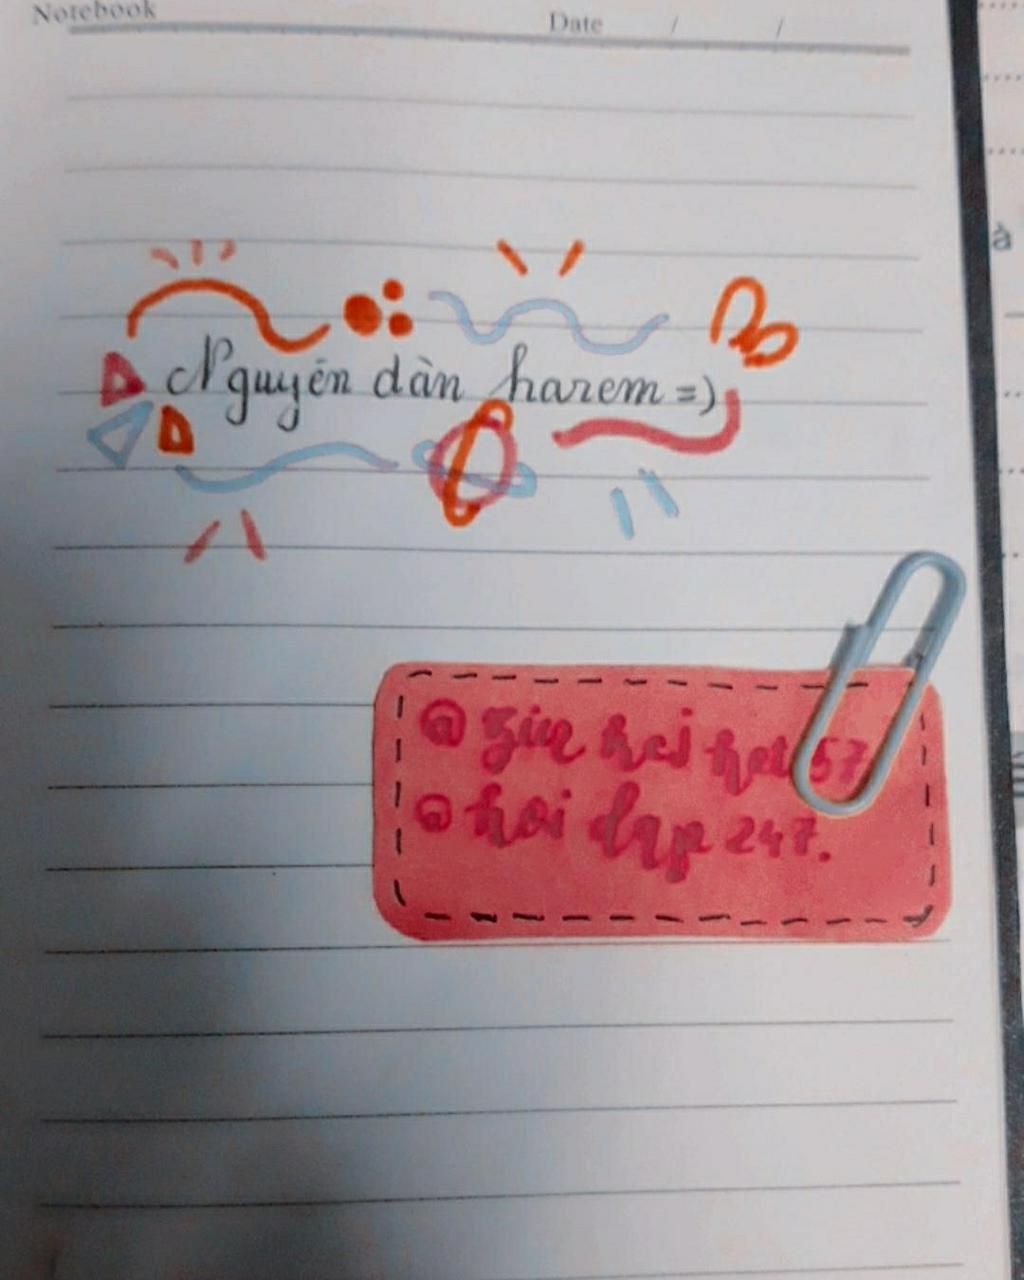 Notebook
Date / /
Nguyên dàn harem =)
à
@ zin hei hot 57
@ hoi dap 247.